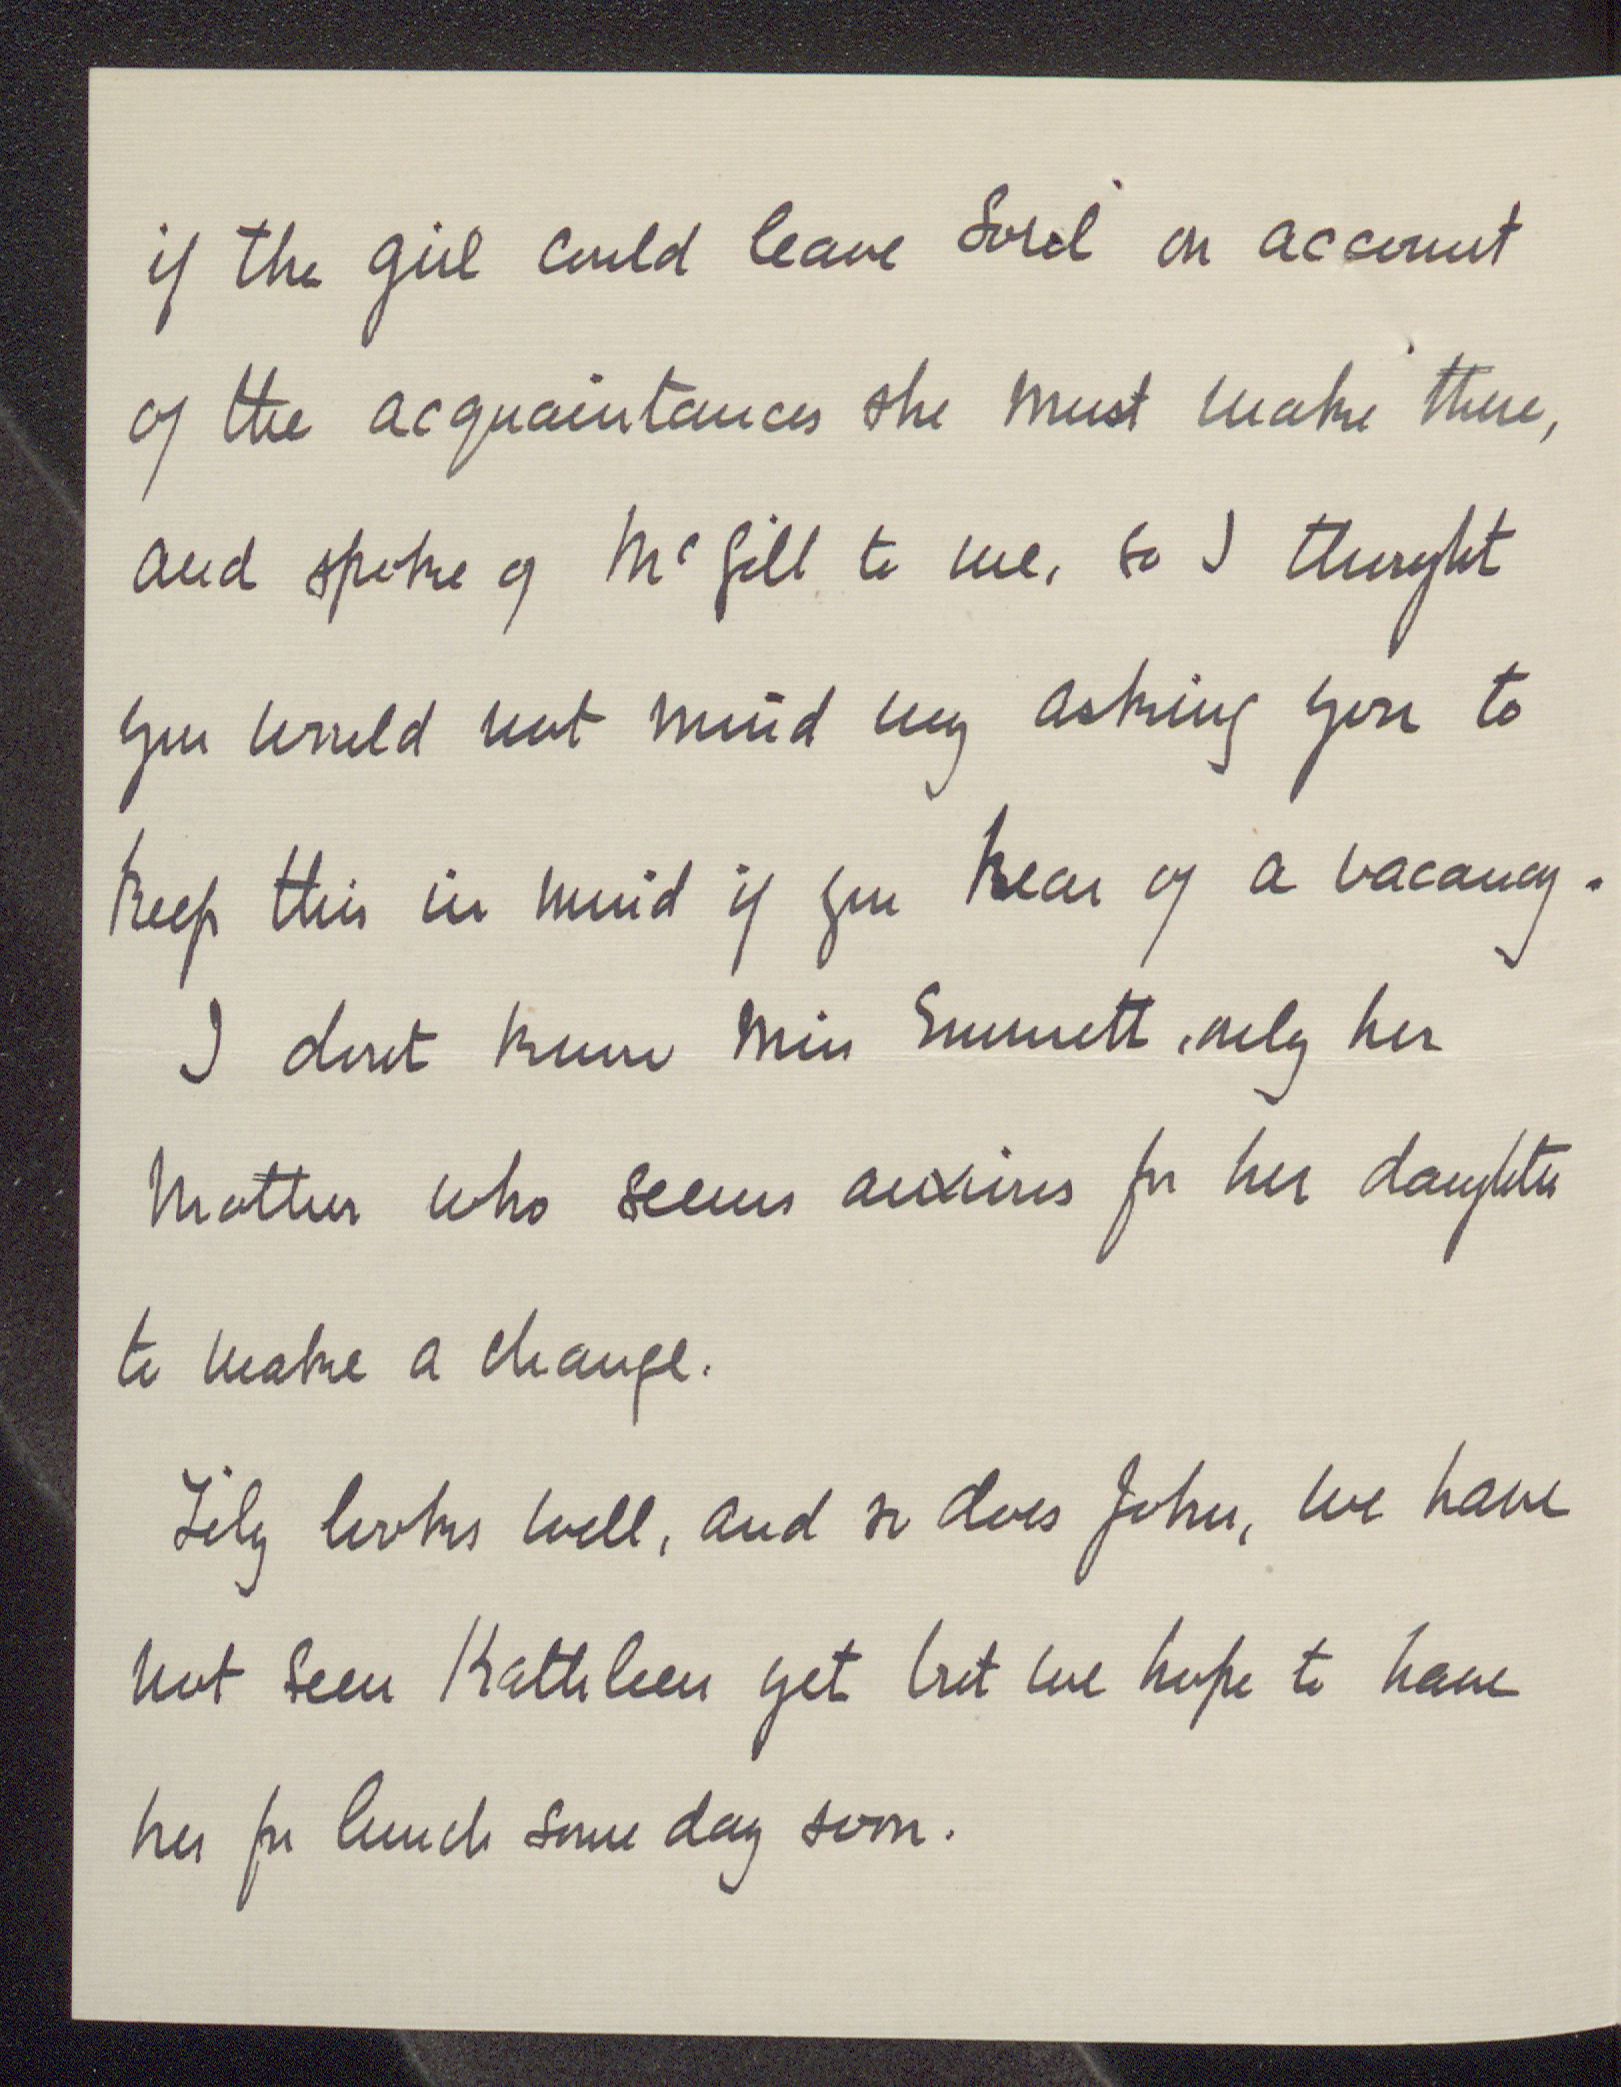 if the girl could leave Sorel on account
of the acquaintances she must make there,
and spoke of McGill to me, so I thought
you would not mind my asking you to
keep this in mind if you hear of a vacancy.
I dont know Miss Emmett, only her
Mother who seems anxious for her daughter
to make a change.
Lily looks well, and so does John, we have
not seen Kathleen yet but we hope to have
her for lunch some day soon.